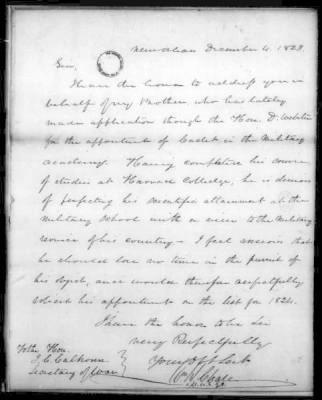 New Orleans December 4. 1823.
Sir,
I have the honor to address you in
behalf of my Brother, who has lately
made application through the Hon. D. Webster
for the appointment of Cadet in the Military
academy. Having completed his course
of studies at Harvard Colledge, he is desirous
of perfecting his scientific attainment at the
Military School with a view to the Military
service of his country – I feel anxious that
he should lose no time in the pursuit of
his object, and would therefore respectfully
solicit his appointment on the list for 1824.
I have the honor to be Sir
very Respectfully
Your Obt Servt
To the Hon.
J. C. Calhoun
Secretary of War